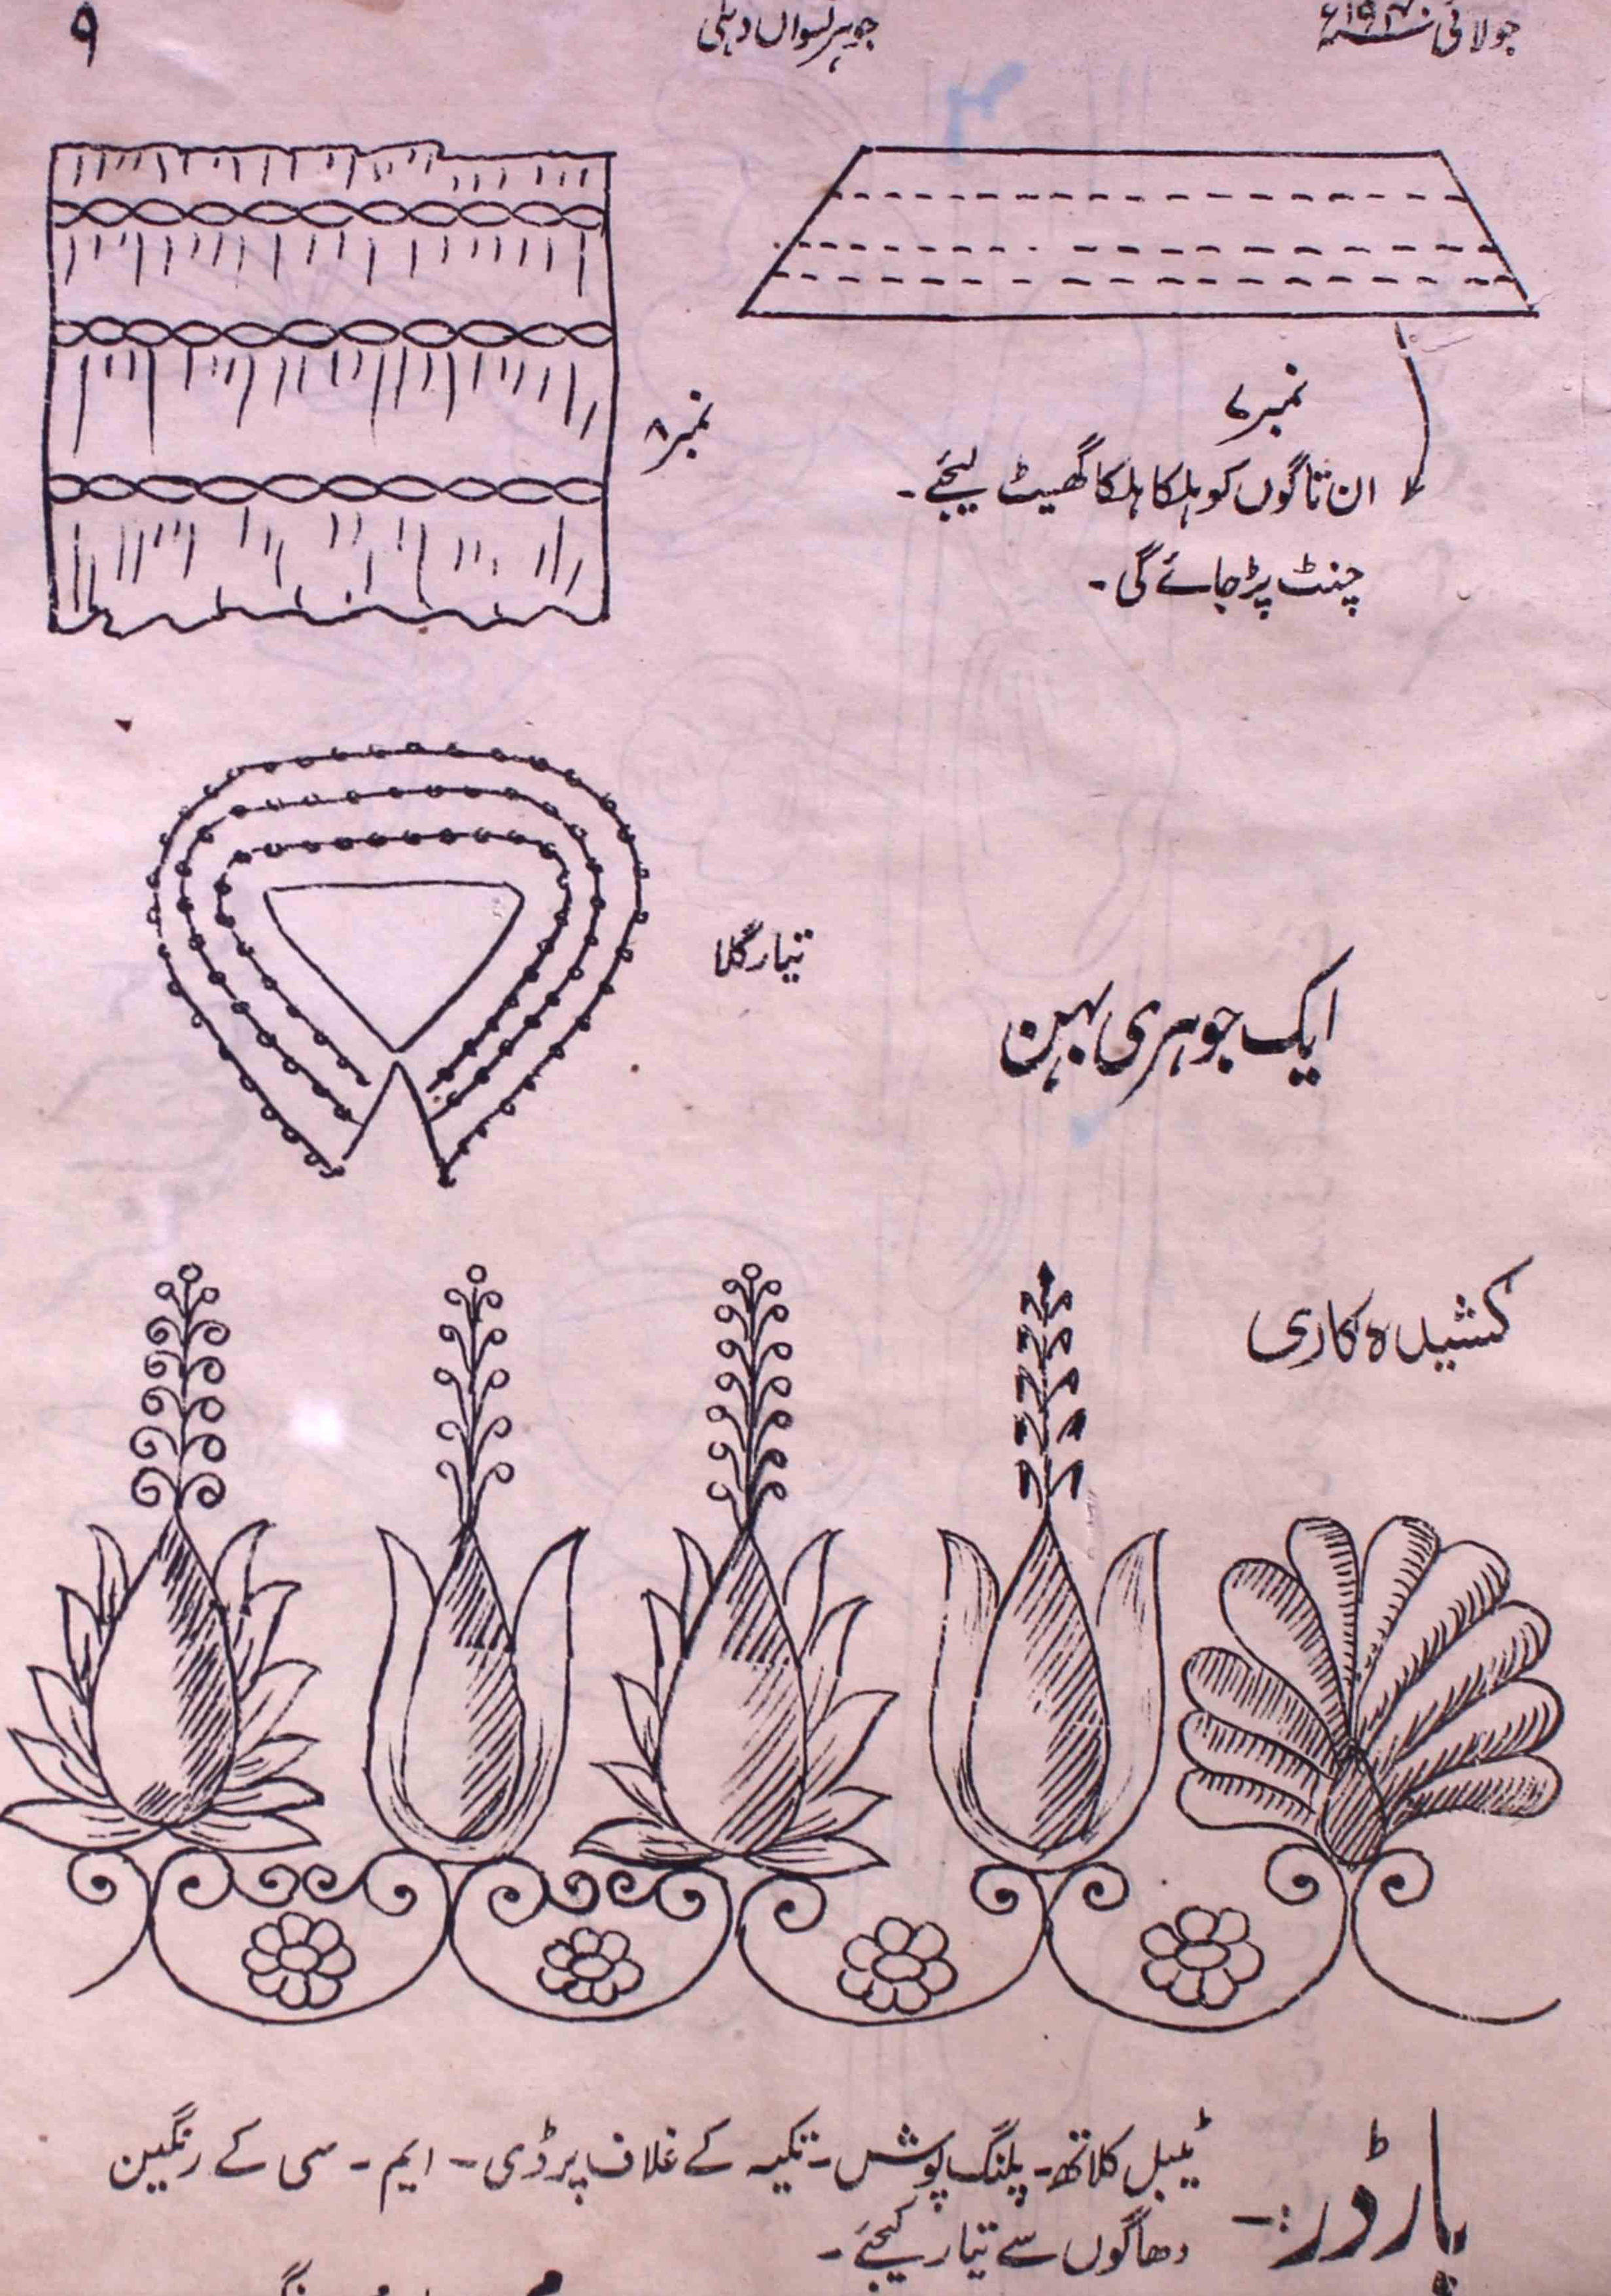 جولائی سنہ ۱۹۴۰ء
جوہر نسواں دہلی
۹
نمبر ۷
ان تاگوں کو ہلکا ہلکا گھسیٹ لیجئے۔
چنٹ پڑ جائے گی۔
نمبر ۸
تیار گلا
ایک جوہری بہن
کشیدہ کاری
بارڈر:۔ ٹیبل کلاتھ۔ پلنگ پوش۔ تکیہ کے غلاف پر ڈی۔ ایم۔ سی کے رنگین
دھاگوں سے تیار کیجئے۔